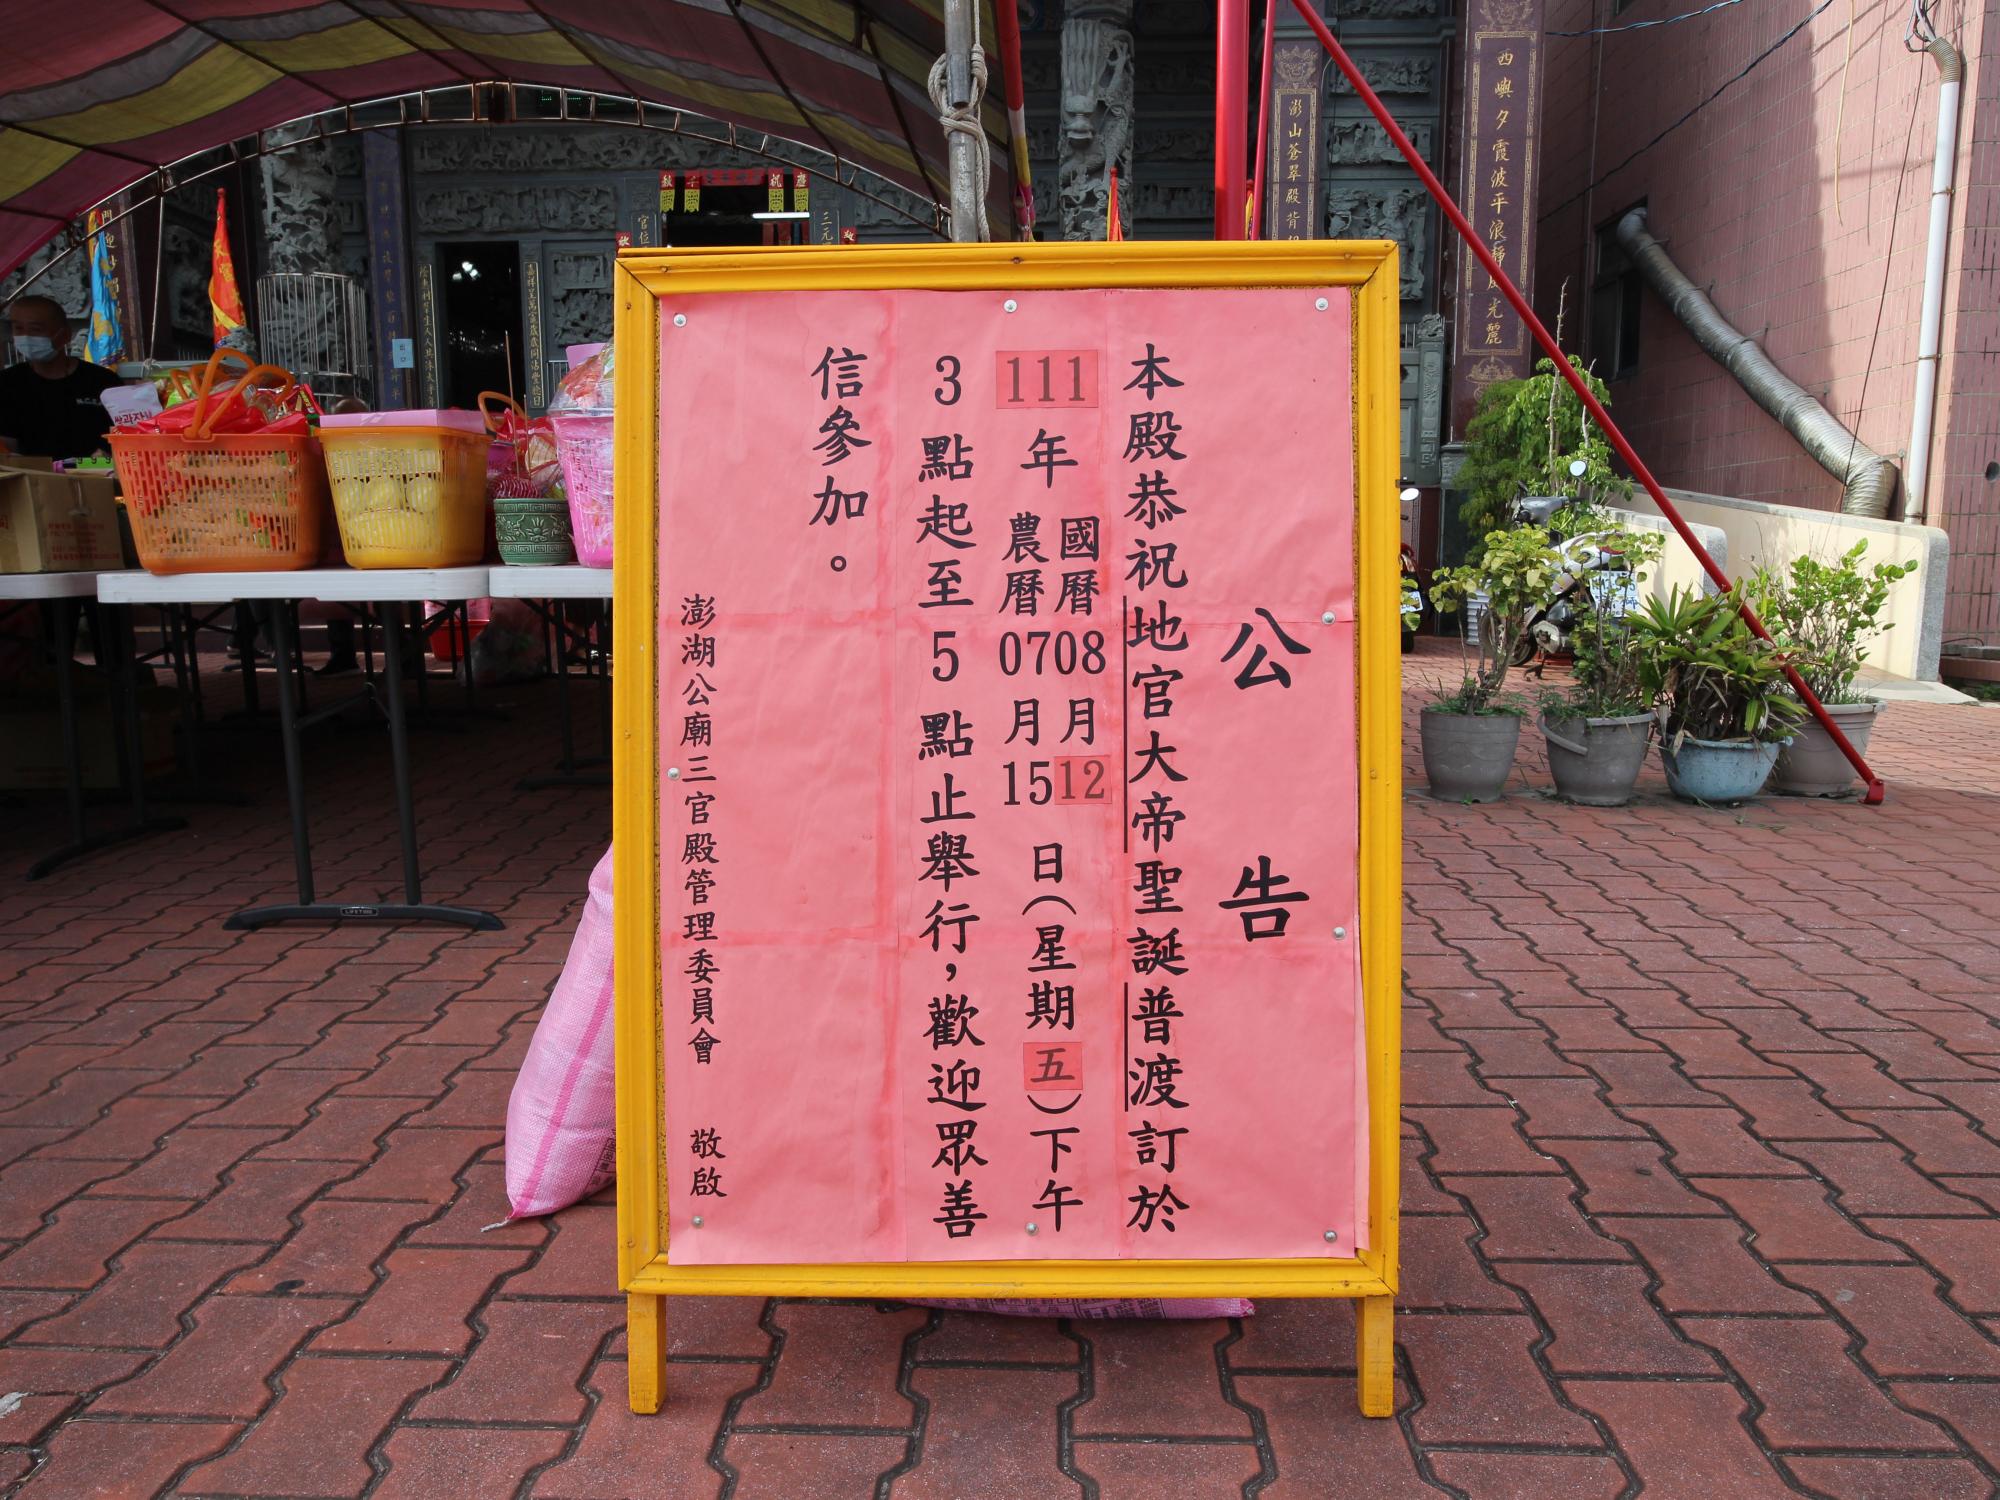 公告
本殿恭祝地官大帝聖誕普渡訂於
111年國曆08月12日(星期五)下午
農曆07月15
3點起至5點止舉行，歡迎眾善
信參加。
澎湖公廟三官殿管理委員會 敬啟
西嶼夕霞波平浪靜
光麗
澎山蒼翠殿背
LIFETIME